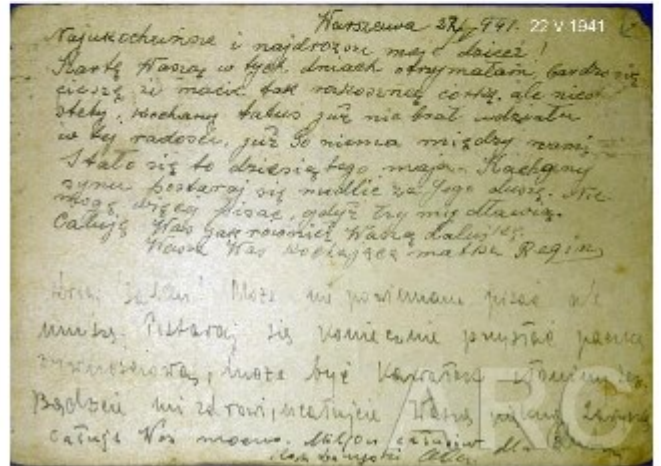 Warszawa 22/V 941. 22 V 1941
Najukochańsze i najdroższe moje dzieci!
Kartę Waszą w tych dniach otrzymałam, bardzo się
cieszę że macie tak rozkoszną córkę, ale nies
stety, kochany tatuś już nie brał udziału
w tej radości, już Go niema między nami,
Stało się to dziesiątego maja. Kochany
synu postaraj się modlić za Jego duszę. Nie
mogę więcej pisać, gdyż łzy mię dławią.
Całuję Was jak również Waszą
Wasza Was kochająca matka Regina
Może nie powinnam pisać ale
muszę. Postaraj się koniecznie przysłać paczkę
żywnościową, może być kawałek
Bądźcie mi zdrowi, ucałujcie Waszą
Całuję Was mocno. całusów dla
ARC